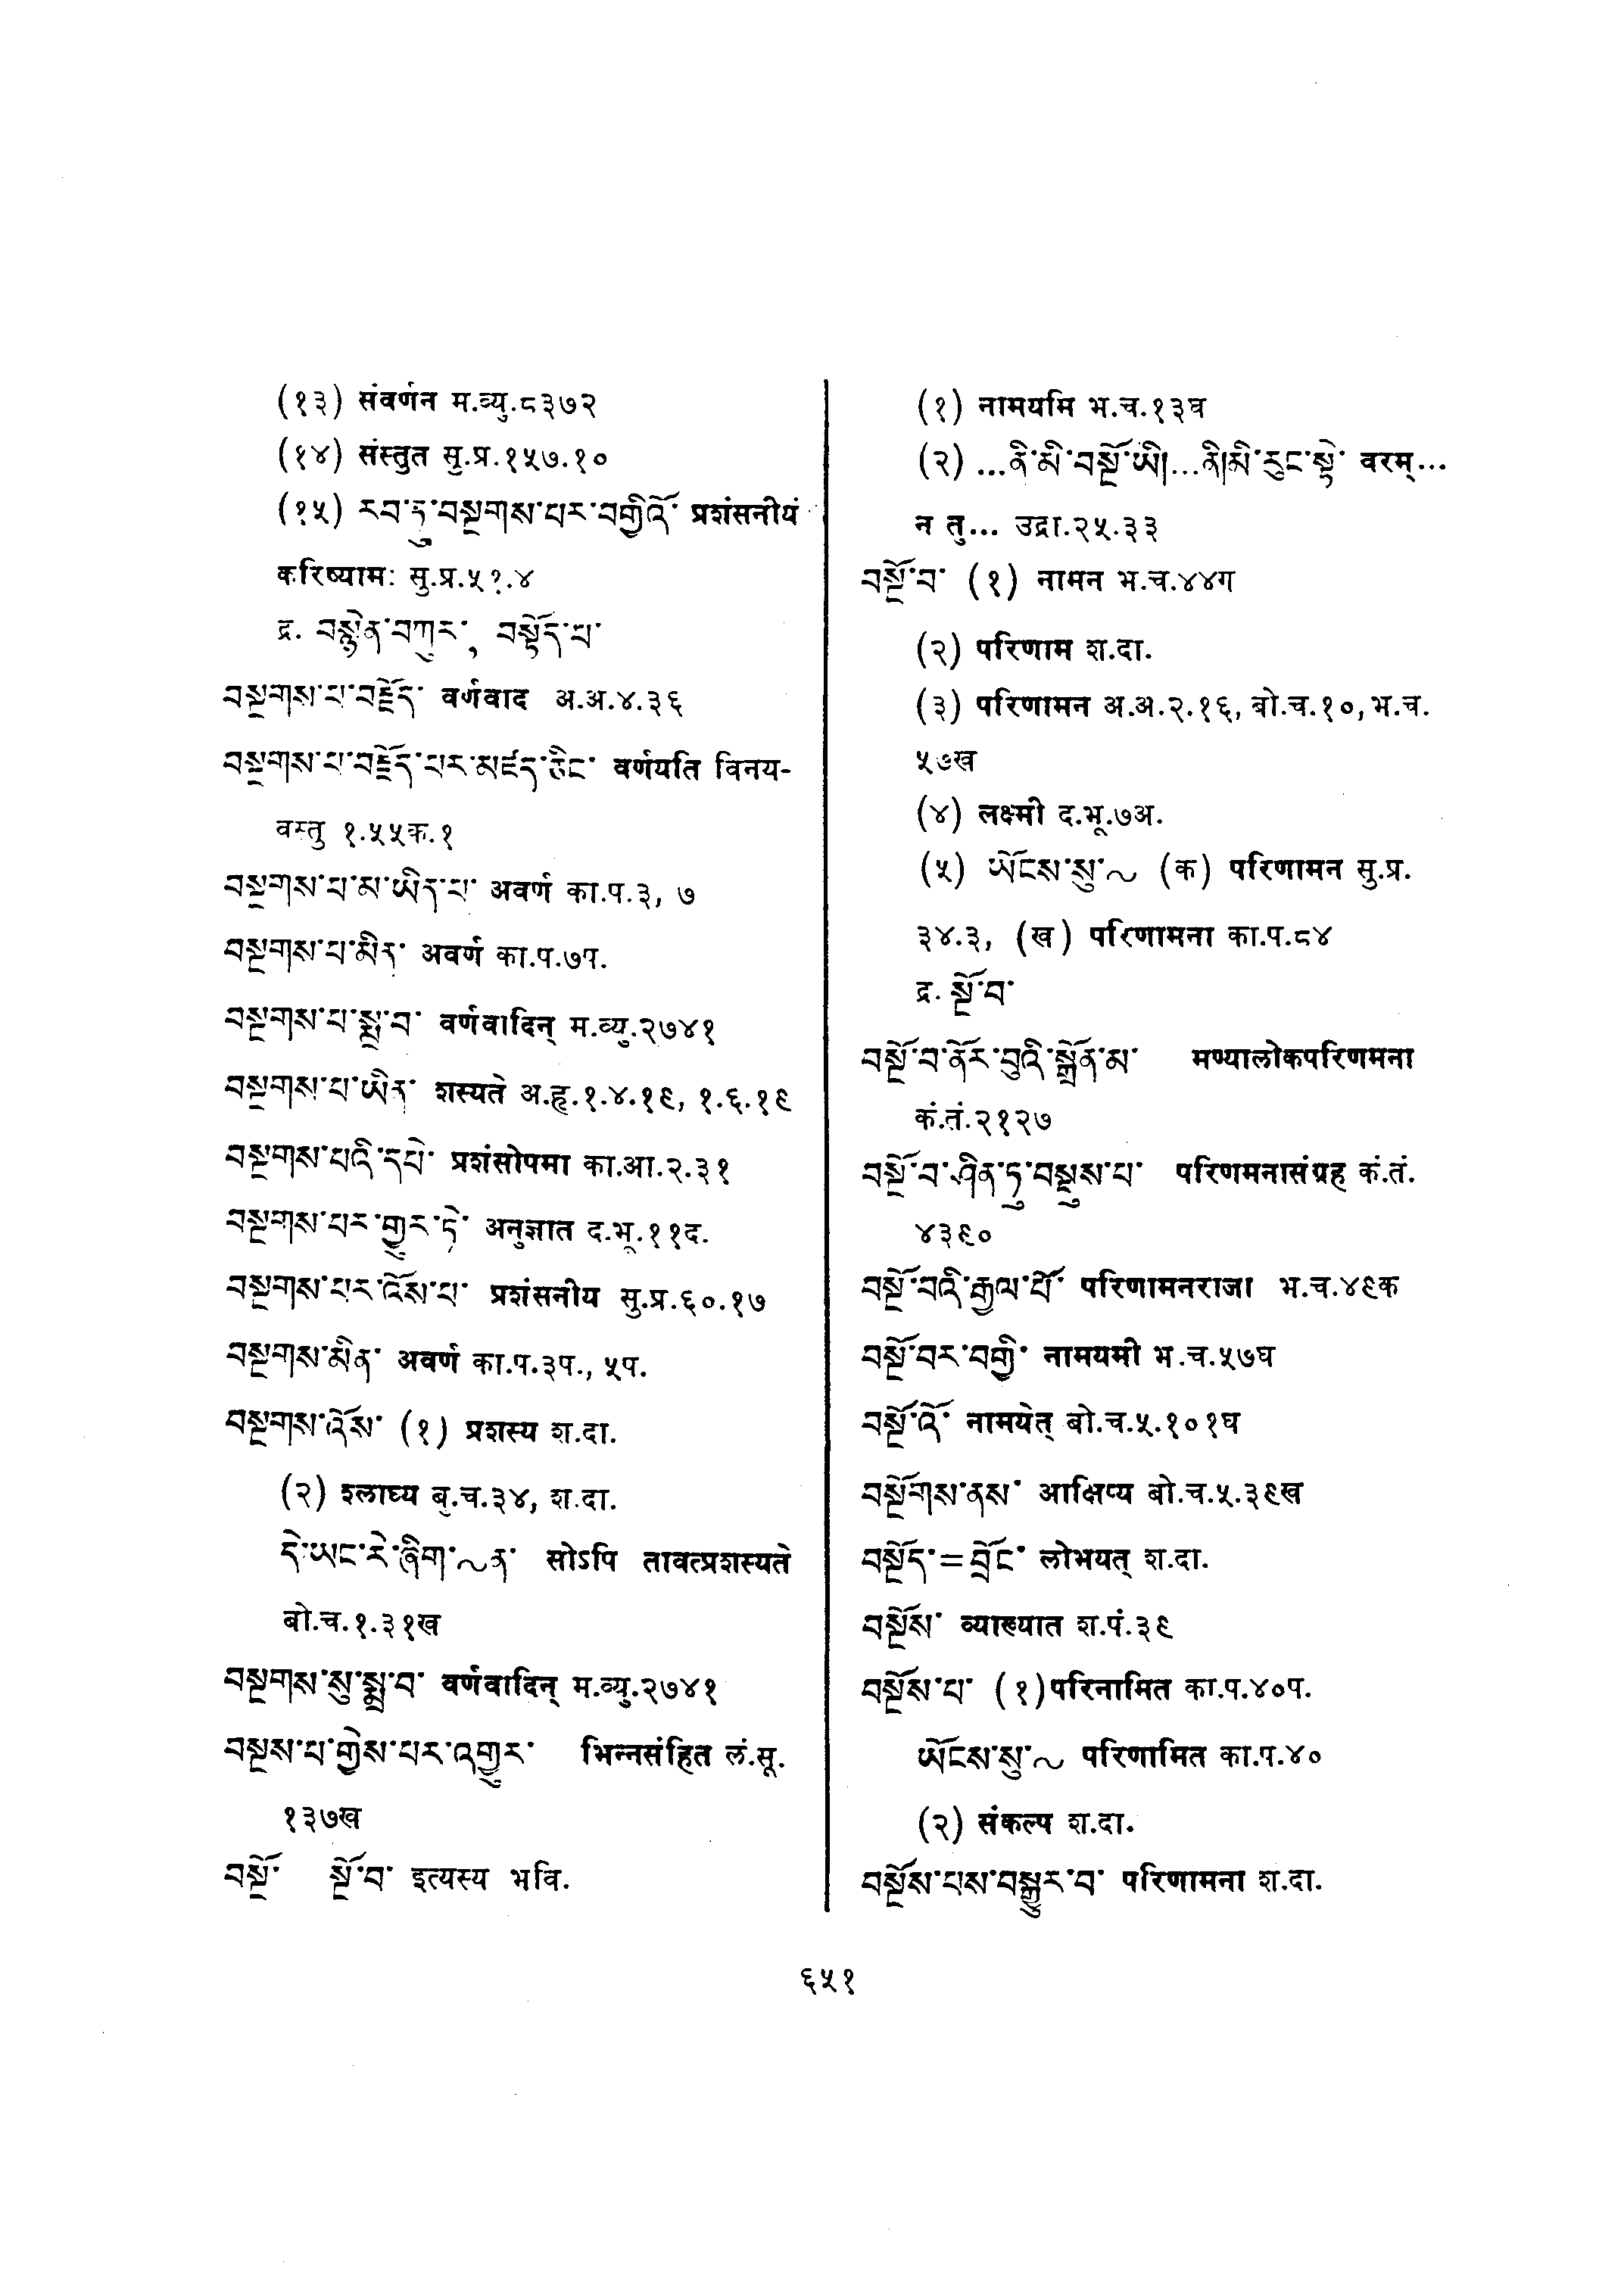 (१३) संवर्णन म.व्यु.८३७२
(१४) संस्तुत सु.प्र.१५७.१०
(१५) རབ་ཏུ་བསྔགས་པར་བགྱིའོ་ प्रशंसनीयं
करिष्यामः सु.प्र.५१.४
द्र. བསྙེན་བཀུར་, བསྟོད་པ་
བསྔགས་པ་བརྗོད་ वर्णवाद अ.अ.४.३६
བསྔགས་པ་བརྗོད་པར་མཛད་ཅིང་ वर्णयति विनय-
वस्तु १.५५क.१
བསྔགས་པ་མ་ཡིན་པ་ अवर्ण का.प.३, ७
བསྔགས་པ་མིན་ अवर्ण का.प.७प.
བསྔགས་པ་སྨྲ་བ་ वर्णवादिन् म.व्यु.२७४१
བསྔགས་པ་ཡིན་ शस्यते अ.हृ.१.४.१९, १.६.१९
བསྔགས་པའི་དཔེ་ प्रशंसोपमा का.आ.२.३१
བསྔགས་པར་གྱུར་ཏེ་ अनुज्ञात द.भू.११द.
བསྔགས་པར་འོས་པ་ प्रशंसनीय सु.प्र.६०.१७
བསྔགས་མིན་ अवर्ण का.प.३प., ५प.
བསྔགས་འོས་ (१) प्रशस्य श.दा.
(२) श्लाघ्य बु.च.३४, श.दा.
དེ་ཡང་རེ་ཞིག་~ན་ सोऽपि तावत्प्रशस्यते
बो.च.१.३१ख
བསྔགས་སུ་སྨྲ་བ་ वर्णवादिन् म.व्यु.२७४१
བསྔས་པ་གྱེས་པར་འགྱུར་ भिन्नसंहित लं.सू.
१३७ख
བསྔོ་ སྔོ་བ་ इत्यस्य भवि.
(१) नामयमि भ.च.१३घ
(२) ...ནི་མི་བསྔོ་ཡི།...ནི།མི་རུང་སྟེ་ वरम्...
न तु... उद्रा.२५.३३
བསྔོ་བ་ (१) नामन भ.च.४४ग
(२) परिणाम श.दा.
(३) परिणामन अ.अ.२.१६, बो.च.१०, भ.च.
५७ख
(४) लक्ष्मी द.भू.७अ.
(५) ཡོངས་སུ་~ (क) परिणामन सु.प्र.
३४.३, (ख) परिणामना का.प.८४
द्र. སྔོ་བ་
བསྔོ་བ་ནོར་བུའི་སྒྲོན་མ་ मण्यालोकपरिणमना
कं.तं.२१२७
བསྔོ་བ་ཤིན་ཏུ་བསྡུས་པ་ परिणमनासंग्रह कं.तं.
४३९०
བསྔོ་བའི་རྒྱལ་པོ་ परिणामनराजा भ.च.४९क
བསྔོ་བར་བགྱི་ नामयमी भ.च.५७घ
བསྔོ་འོ་ नामयेत् बो.च.५.१०१घ
བསྔོགས་ནས་ आक्षिप्य बो.च.५.३९ख
བསྔོད་=བྲོང་ लोभयत् श.दा.
བསྔོས་ व्याख्यात श.पं.३९
བསྔོས་པ་ (१)परिनामित का.प.४०प.
ཡོངས་སུ་~ परिणामित का.प.४०
(२) संकल्प श.दा.
བསྔོས་པས་བསྒྱུར་བ་ परिणामना श.दा.
६५१